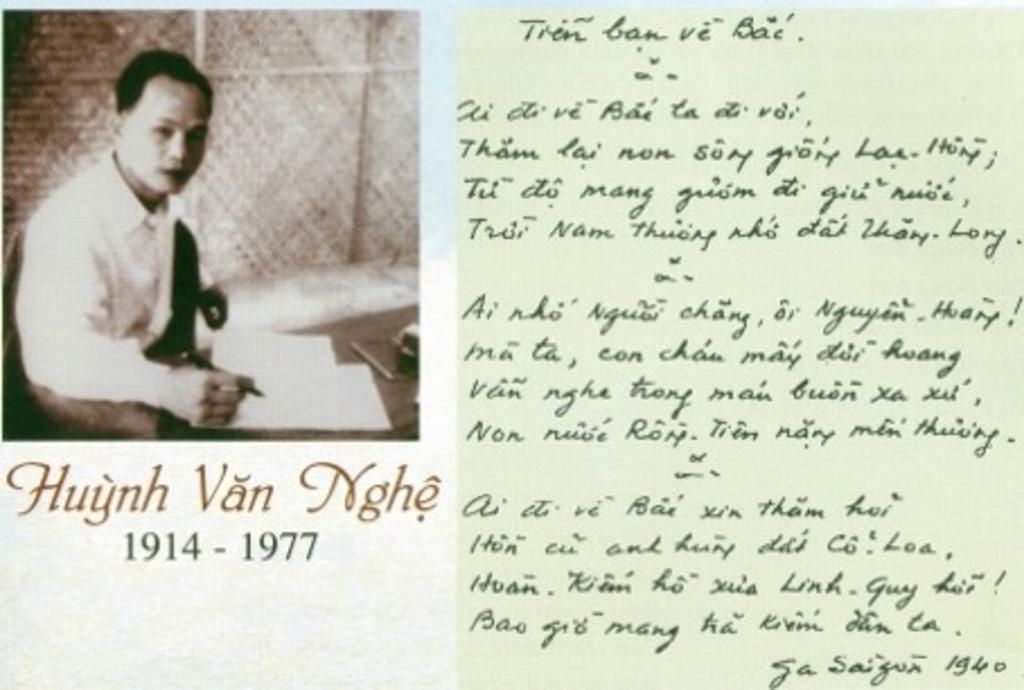 Huỳnh Văn Nghệ
1914 - 1977
Tiễn bạn về Bắc.
Ai đi về Bắc ta đi với,
Thăm lại non sông giống Lạc-Hồng;
Từ độ mang gươm đi giữ nước,
Trời Nam thương nhớ đất Thăng-Long.
Ai nhớ người chăng, ôi Nguyễn-Hoàng!
Mà ta, con cháu mấy đời hoang
Vẫn nghe trong máu buồn xa xứ,
Non nước Rồng-Tiên nặng mến thương.
Ai đi về Bắc xin thăm hỏi
Hồn cũ anh hùng đất Cổ-Loa,
Hoàn-Kiếm hồ xưa Linh-Quy hỡi!
Bao giờ mang trả kiếm dân ta.
Ga Saigon 1940